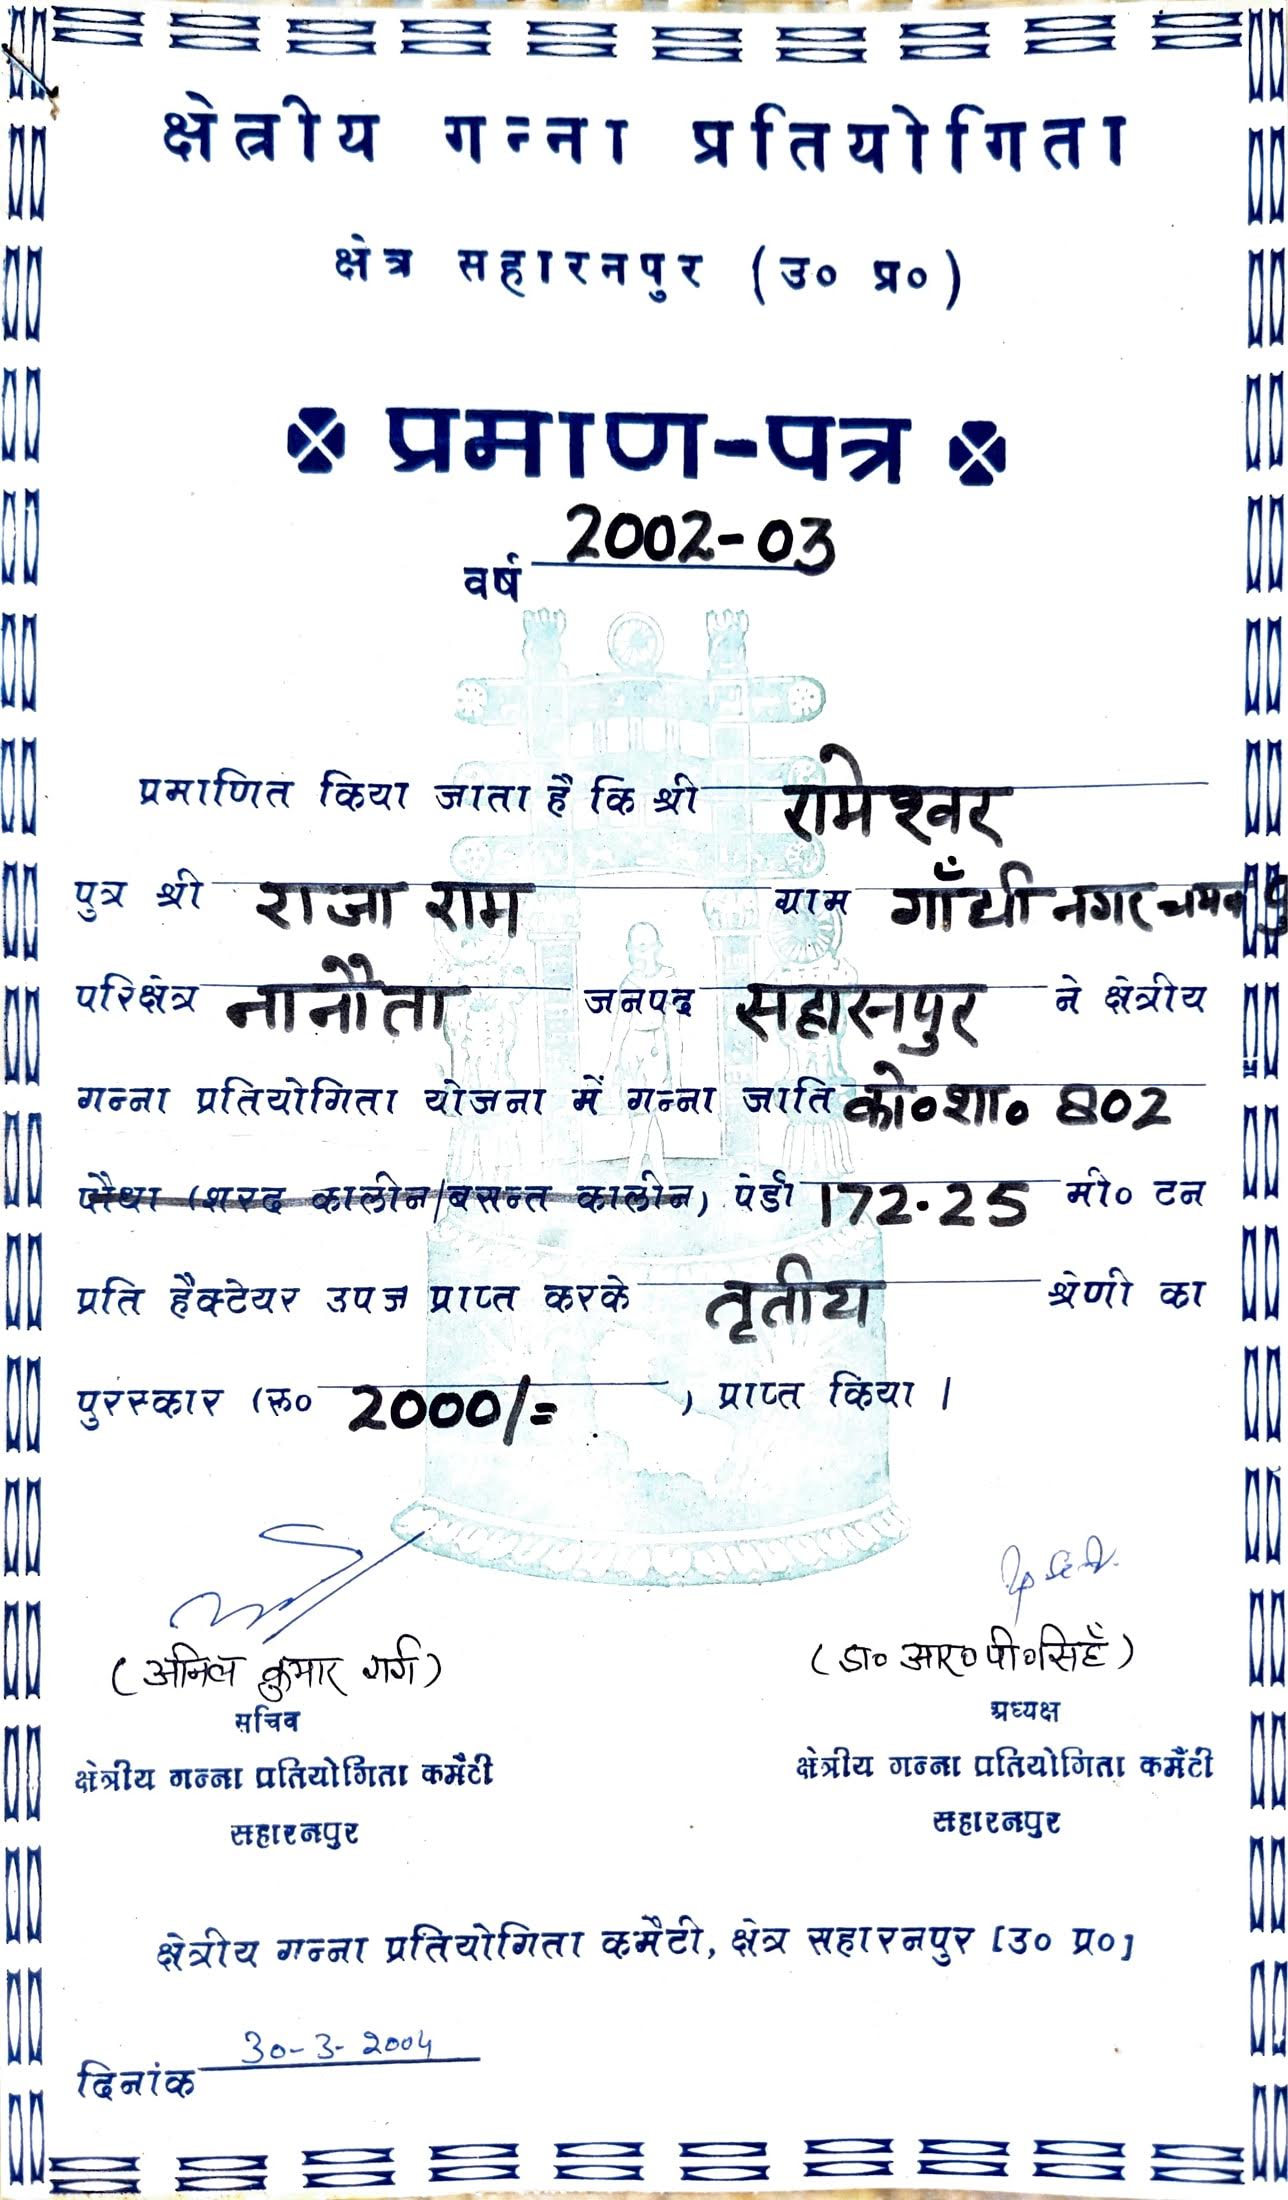 क्षेत्रीय गन्ना प्रतियोगिता
क्षेत्र सहारनपुर (उ० प्र०)
प्रमाण-पत्र
वर्ष 2002-03
प्रमाणित किया जाता है कि श्री रामेश्वर
पुत्र श्री राजा राम ग्राम गाँधी नगर
परिक्षेत्र नानौता जनपद सहारनपुर ने क्षेत्रीय
गन्ना प्रतियोगिता योजना में गन्ना जाति को०शा० 802
पौधा (शरद कालीन/बसन्त कालीन) पेडी 172.25 मी० टन
प्रति हैक्टेयर उपज प्राप्त करके तृतीय श्रेणी का
पुरस्कार (रू० 2000/=) प्राप्त किया।
(अनिल कुमार गर्ग) (डा० आर० पी० सिहँ)
सचिव अध्यक्ष
क्षेत्रीय गन्ना प्रतियोगिता कमैटी क्षेत्रीय गन्ना प्रतियोगिता कमैटी
सहारनपुर सहारनपुर
क्षेत्रीय गन्ना प्रतियोगिता कमैटी, क्षेत्र सहारनपुर [उ० प्र०]
दिनांक 30-3-2004